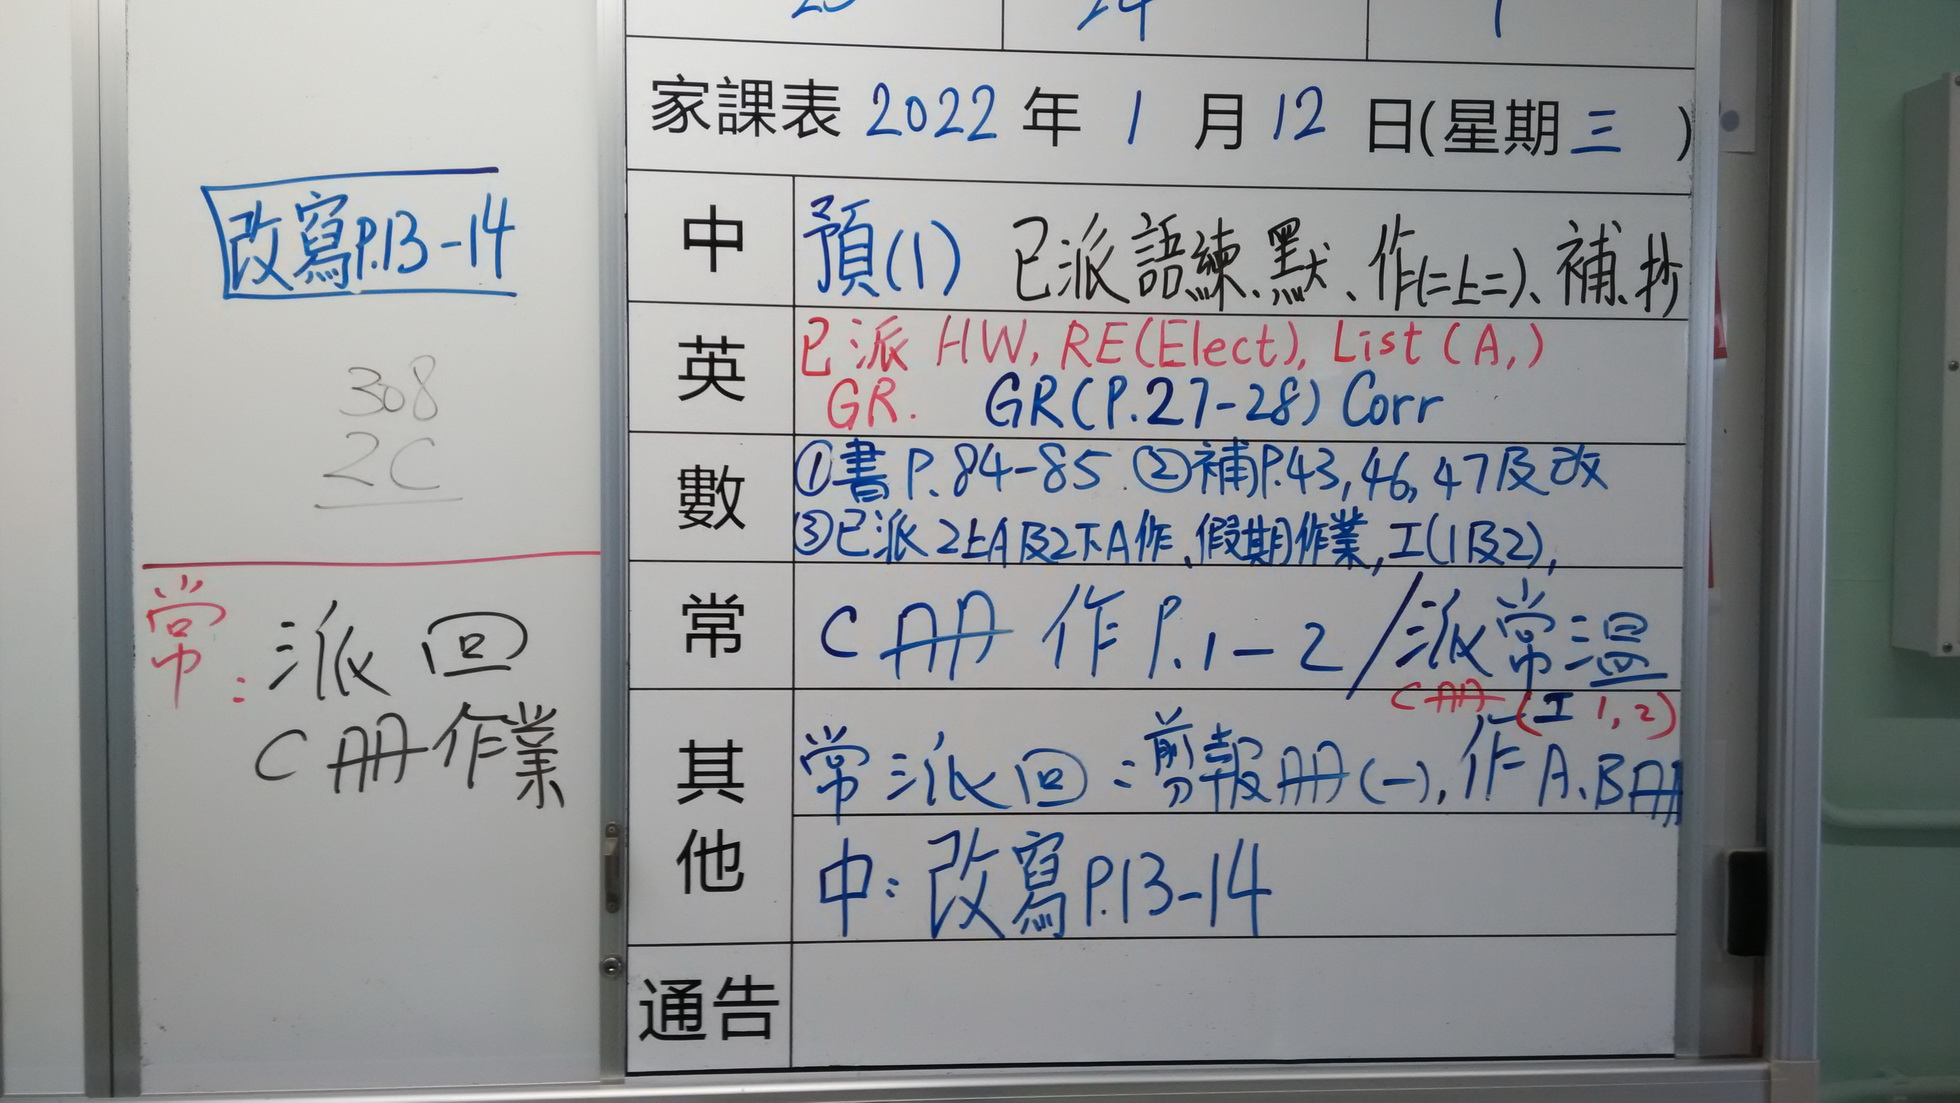 改寫P.13-14
308
2C
常：派回
C冊作業
24
家課表 2022 年 1 月 12 日(星期三)
中 預(1) 已派語練、默、作(二上二)、補、抄
英 已派 HW, RE(Elect), List (A,)
GR. GR(P.27-28) Corr
數 ①書P.84-85 ②補P.43,46,47及改
③已派2上A及2下A作、假期作業,工(1及2),
常 C冊 作P.1-2/派常溫
C冊 (工 1,2)
其他 常派回：剪報冊(一),作A、B冊
中：改寫P.13-14
通告